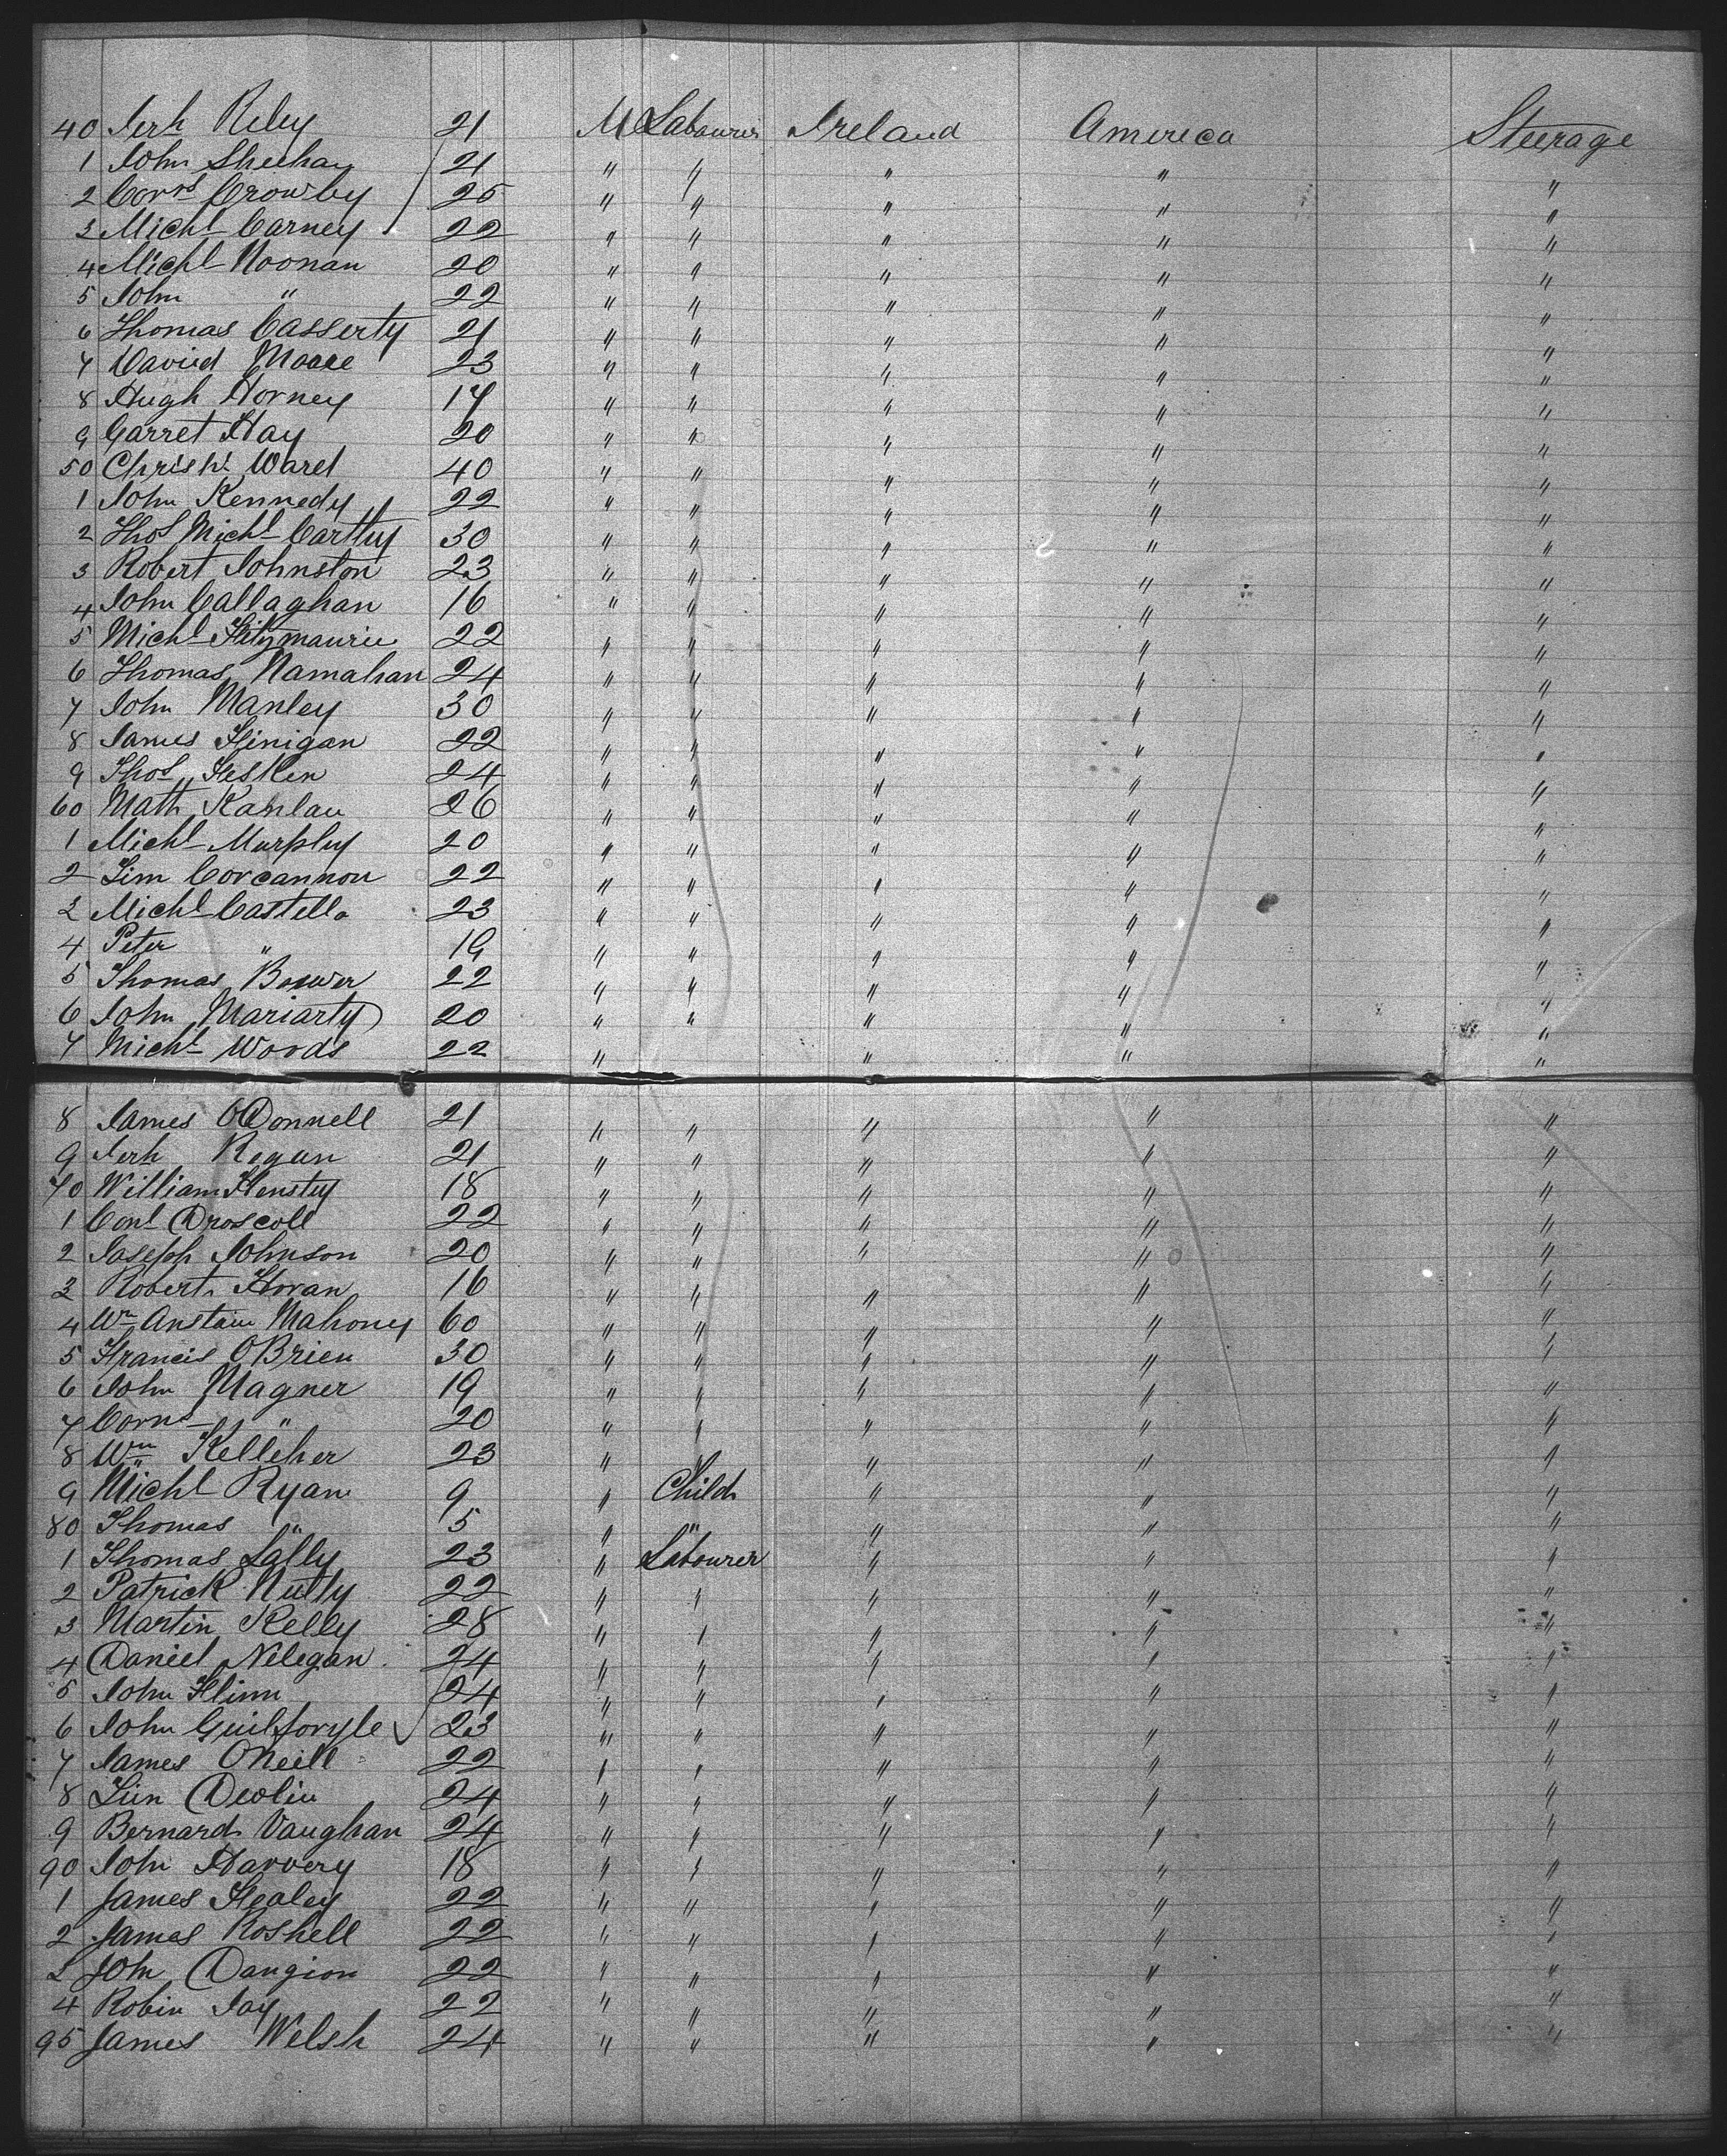 40 Jerh Riley 21 M Labourer Ireland America Steerage
1 John Sheehan 21 " " " " "
2 Corns Crowley 25 " " " " "
3 Michl Carney 22 " " " " "
4 Michl Noonan 20 " " " " "
5 John " 22 " " " " "
6 Thomas Casserty 21 " " " " "
7 David Moore 23 " " " " "
8 Hugh Horney 17 " " " " "
9 Garret Hay 20 " " " " "
50 Christr Ward 40 " " " " "
1 John Kennedy 22 " " " " "
2 Thos Michl Cartty 30 " " " " "
3 Robert Johnston 23 " " " " "
4 John Callaghan 16 " " " " "
5 Michl Fitzmaurice 22 " " " " "
6 Thomas Namahan 24 " " " " "
7 John Manley 30 " " " " "
8 James Finigan 22 " " " " "
9 Thos Hesken 24 " " " " "
60 Math Kanlan 26 " " " " "
1 Michl Murphy 20 " " " " "
2 Tim Corcannon 22 " " " " "
3 Michl Castello 23 " " " " "
4 Peter " 19 " " " " "
5 Thomas Bouwer 22 " " " " "
6 John Mariarty 20 " " " " "
7 Michl Woods 22 " " " "
8 James ODonnell 21 " " " " "
9 Jerh Regan 21 " " " " "
70 William Hensty 18 " " " " "
1 Conl Droscoll 22 " " " " "
2 Joseph Johnson 20 " " " " "
3 Robert Horan 16 " " " " "
4 Wm Anstain Mahoney 60 " " " " "
5 Francis OBrien 30 " " " " "
6 John Magner 19 " " " " "
7 Corns " 20 " " " " "
8 Wm Kelleher 23 " " " " "
9 Michl Ryan 9 " Child " " "
80 Thomas " 5 " " " " "
1 Thomas Lally 23 " Labourer " " "
2 Patrick Nutty 22 " " " " "
3 Martin Kelly 28 " " " " "
4 Daniel Nelegan 24 " " " " "
5 John Flinn 24 " " " " "
6 John Guilforyle 23 " " " " "
7 James ONeill 22 " " " " "
8 Tim Devlin 24 " " " " "
9 Bernard Vaughan 24 " " " " "
90 John Harvery 18 " " " " "
1 James Healey 22 " " " " "
2 James Roshell 22 " " " " "
3 John Dangion 22 " " " " "
4 Robin Jay 22 " " " " "
95 James Welsh 24 " " " " "